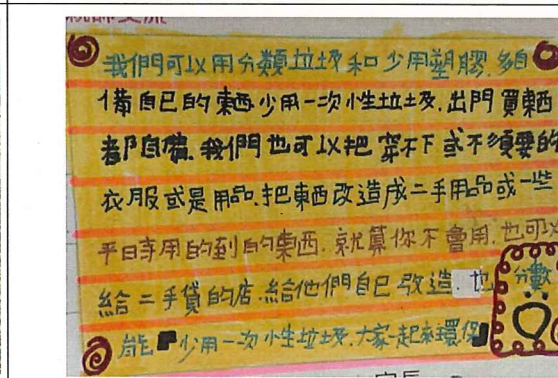 親師交流
我們可以用分類垃圾和少用塑膠.多自
備自己的東西少用一次小性垃圾.出門買東西
都自備.我們也可以把穿不下或不須要的
衣服或是用品.把東西改造成二手用品或一些
平日時用的到的東西.就算你不會用.也可以
給二手貨的店.給他們自己改造.也
能少用一次小性垃圾.大家起來環保
分數